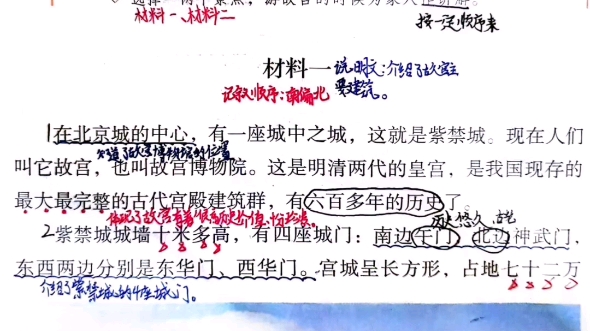 材料一、材料二
按一定顺序来
材料一
说明文:介绍了故宫主
要建筑。
记叙顺序:南偏北
1在北京城的中心,有一座城中之城,这就是紫禁城。现在人们
知道了故宫博物院的位置
叫它故宫,也叫故宫博物院。这是明清两代的皇宫,是我国现存的
最大最完整的古代宫殿建筑群,有六百多年的历史了。
体现了故宫有着很高历史价值
历史悠久
2紫禁城城墙十米多高,有四座城门:南边午门,北边神武门,
东西两边分别是东华门、西华门。宫城呈长方形,占地七十二万
介绍了紫禁城的4座城门。